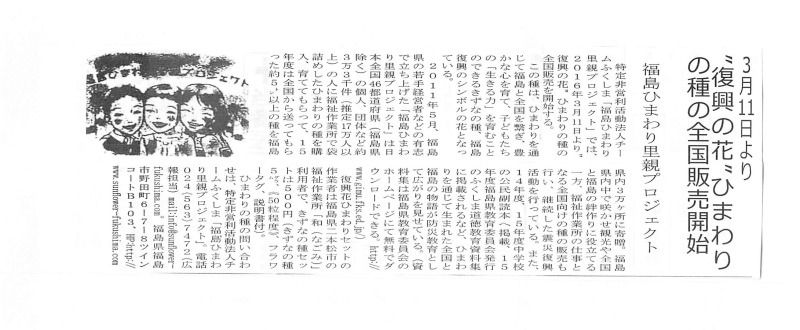 3月11日より
“復興の花”ひまわり
の種の全国販売開始
福島ひまわり里親プロジェクト
特定非営利活動法人チー
ムふくしま「福島ひまわり
里親プロジェクト」では、
2016年3月11日より、
復興の花、ひまわりの種の
全国販売を開始する。
この種は、ひまわりを通
じて福島と全国を繋ぎ、豊
かな心を育て、子どもたち
の「生きる力」を育むこと
のできるきずなの種。福島
復興のシンボルの花となっ
ている。
2011年5月、福島
県の若手経営者などの有志
で立ち上げた「福島ひまわ
り里親プロジェクト」は日
本全国46都道府県（福島県
除く）の個人、団体など約
3万3千件（推定17万人以
上）の人に福祉作業所で袋
詰めしたひまわりの種を購
入、育ててもらって、15
年度は全国から送ってもら
った約5㌧以上の種を福島
ひまわり里親プロジェクト
県内3万ヶ所に寄贈、福島
県内中で咲かせ観光や全国
と福島の絆作りに役立てる
一方、福祉作業所の仕事と
なる全国向けの種の販売も
行い、継続した震災復興
活動を行っている。また、
14年度、15年度中学校
の公民副読本へ掲載、15
年度福島県教育委員会発行
のふくしま道徳教育資料集
に掲載されるなど、ひまわ
りを通じて生まれた全国と
福島の物語が防災教育とし
て広がりを見せている。（資
料集は福島県教育委員会の
ホームページにて無料でダ
ウンロードできる。http://
www.gimu.fks.ed.jp/）
復興花ひまわりセットの
作業者は福島県二本松市の
福祉作業所「和（なごみ）」
利用者で、きずなの種セッ
トは500円（きずなの種
5㌘、（50粒程度）、フラワ
ータグ、説明書付）。
ひまわりの種の問い合わ
せは、特定非営利活動法人チ
ームふくしま「福島ひまわ
り里親プロジェクト」、電話
024（563）7472（広
報担当）mail:info@sunflower-
fukushima.com 福島県福島
市野田町6-7-8ツイン
コートB103、HP http://
www.sunflower-fukushima.com